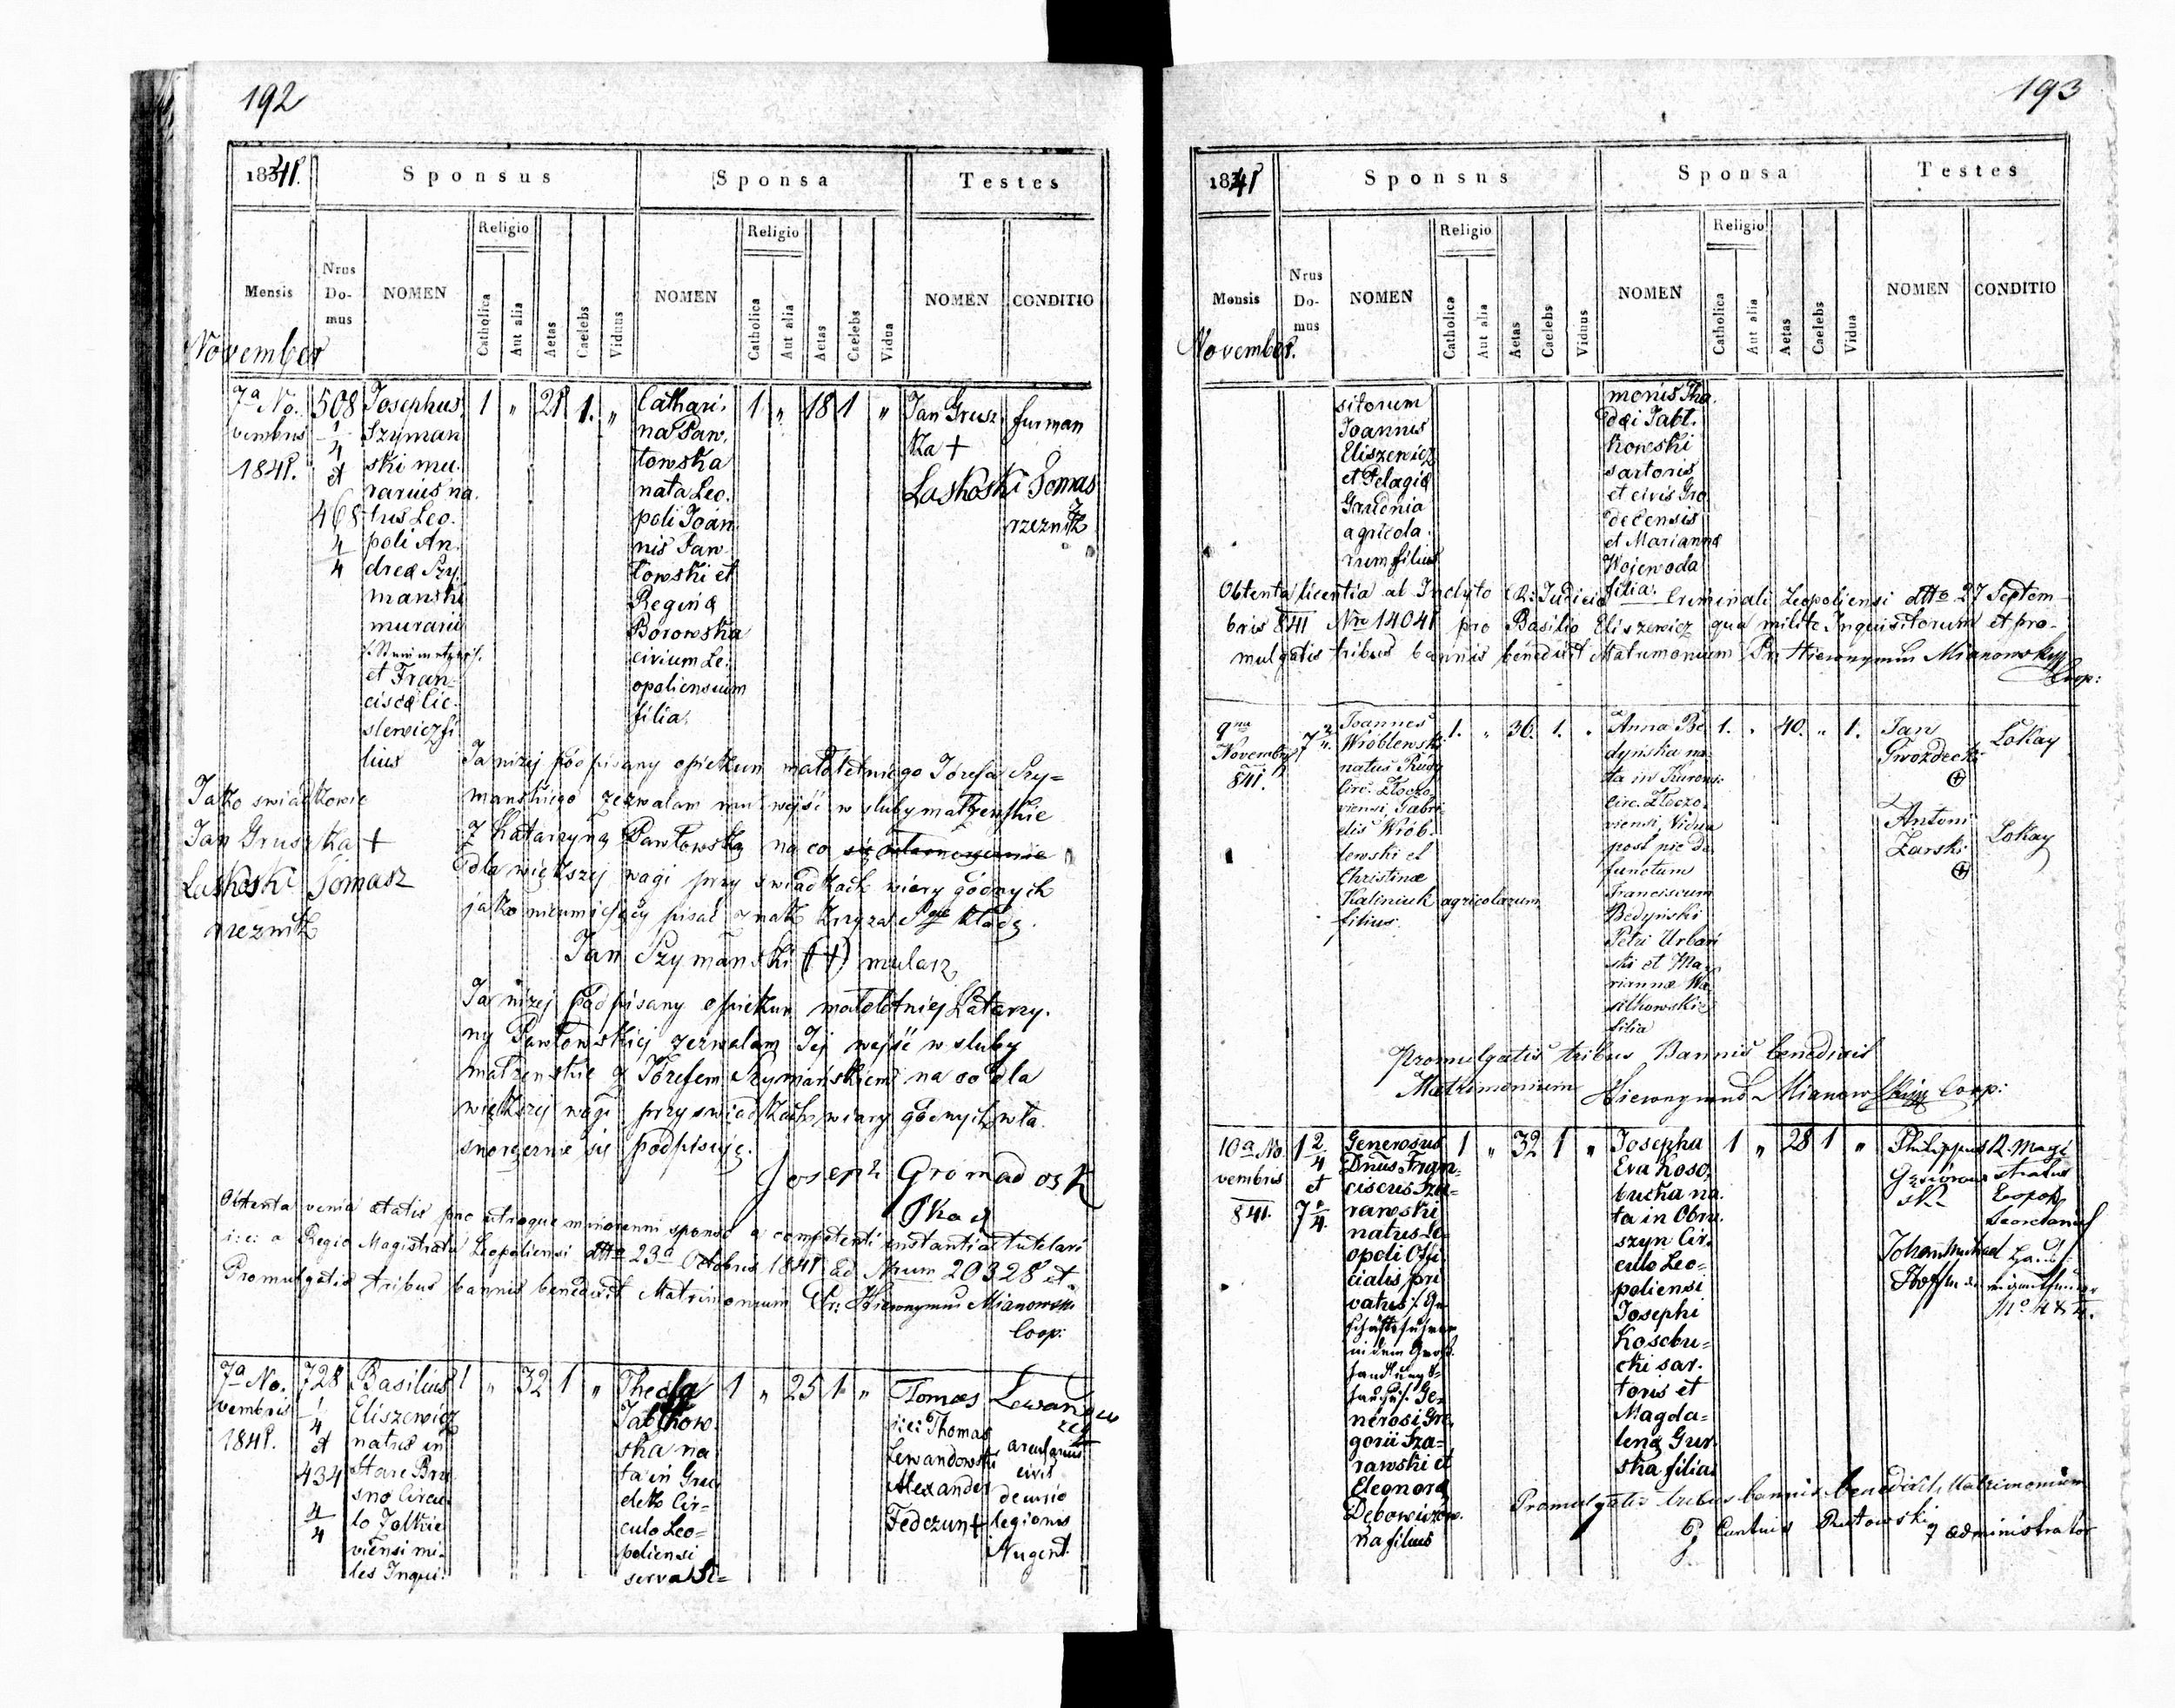 192
1841.
Sponsus
Sponsa
Testes
Religio
Religio
Mensis
Nrus
Do-
mus
NOMEN
Catholica
Aut alia
Aetas
Caelebs
Viduus
NOMEN
Catholica
Aut alia
Aetas
Caelebs
Vidua
NOMEN
CONDITIO
November
7a No.
vembris
1841.
508
1
4
et
468
4
4
Josephus
Szyman
ski mu.
rarius na.
tus Leo.
poli An.
dreæ Szy.
manski
murarii
et Fran
ciscæ Cie.
slewicz fi
lius
1 " 21 1. "
Cathari.
na Paw.
łowska
nata Leo.
poli Joan
nis Paw
łowski et
Reginæ
Borowska
civium Le.
opoliensium
filia.
1 " 18 1 "
Jan Grusz
ka +
furman
Laskoski Tomas
rzeznik
Jako swiadkowie
Jan Gruszka +
Laskoski Tomasz
rzeznik
Ja niżej podpisany opiekun małoletniego Józefa Szy=
manskiego zezwalam mu wejść w sluby małżenskie
z Katarzyną Pawłowską na co
dla większej wagi przy swiadkach wiary godnych
jako nieumiejący pisać znak krzyza S go kładę.
Jan Szymański (++) mularz
Ja niżej podpisany opiekun małoletniej Katarzy.
ny Pawłowskiej zezwalam Jej wejść w sluby
małzenskie z Józefem Szymańskiem na co dla
większej wagi przy swiadkach wiary godnych wła.
snoręcznie się podpisuję.
Joseph Gromadosk
Obtenta venia ætatis pro utroque minorenni sponso a competenti instantia tutelari
i: e: a Regio Magistratu Leopoliensi dtto 23a Octobris 1841 ad Nrum 20328 et
Promulgatis tribus bannis benedixit Matrimonium Fr: Hieronymus Mianowski
Coop:
7a No.
vembris
1841.
728
1
4
et
434
4
4
Basilius
Eliszewicz
natus in
Stare Bru
sno Circu.
lo Zolkie
viensi mi.
les Inqui.
1 " 32 1 "
Thecla
Jabłkow.
ska na
ta in Gro
dek Cir=
culo Leo=
poliensi
serva Si=
1 " 25 1 "
Tomas Lewandow
i: e: Thomas
Lewandowski
Alexander
Fedczun +
civis
decurio
legionis
Nugent
193
1841
Sponsus
Sponsa
Testes
Religio
Religio
Mensis
Nrus
Do-
mus
NOMEN
Catholica
Aut alia
Aetas
Caelebs
Viduus
NOMEN
Catholica
Aut alia
Aetas
Caelebs
Vidua
NOMEN
CONDITIO
November.
sitorum
Joannis
Eliszewicz
et Pelagiæ
Grudnia
agricola.
rum filius
monis Tha.
dæi Jabł.
kowski
sartoris
et civis Gro
decensis
et Mariannæ
Wojewoda
filia.
Obtenta licentia ab Inclyto C: R: Judicio Criminali Leopoliensi dtto 27 Septem
bris 841 Nro 14041 pro Basilio Eliszewicz qua milite Inquisitorum et pro.
mulgatis tribus bannis benedixit Matrimonium Fr: Hieronymus Mianowski
Coop:
9na
Novembris
841.
7 2/4
Joannes
Wróblewski
natus
Circ. Złoczo
viensi Gabri
elis Wrób.
lewski et
Christinæ
Kaliniuk agricolarum
filius.
1. " 36. 1. "
Anna Be
dyńska na
ta in
Circ. Złoczo.
viensi, Vidua
post pie de
functum
Franciscum
Bedyński
Petri Urbań
ski et Ma
riannæ Wa
silkowskie
filia
1. " 40. " 1.
Jan
Gwozdecki
Lokay
Antoni
Zarski
Lokay
Promulgatis tribus Bannis benedixit
Matrimonium Hieronymus Mianowski Coop:
10a No
vembris
841.
1 2/4
et
7 2/4.
Generosus
Dnus Fran
ciscus Sza=
rawski
natus Le
opoli Offi
cialis pri
vatus /: Ge
schäftsführer
in dem Groß.
handlungs=
hause :/ Ge.
nerosi Gre.
gorii Sza=
rawski et
Eleonoræ
Dębowiczów.
na filius
1 " 32 1 "
Josepha
Eva Koso,
bucka na.
ta in Obro.
szyn Cir.
culo Leo=
poliensi
Josephi
Kosobu=
cki sar.
toris et
Magda=
lenæ Gur
ska filia.
1 " 28 1 "
Philippus
R. Magi
stratus
Leopol
Secretarius
Johann Michael
Hoffman
Promulgatis tribus bannis benedixit Matrimonium
Rutowski administrator